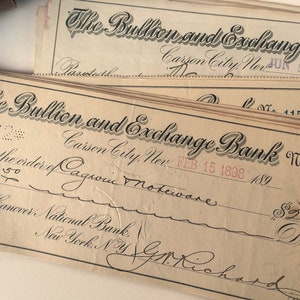 The Bullion and Exchange
Carson City Nev. JUN
Pay to th
Bank No. 115
The Bullion and Exchange Bank N
Carson City, Nev. FEB 15 1898 189
the order of Cagwin & Noteware
50 $2
Hanover National Bank,
New York, N.Y. G. W. Richard